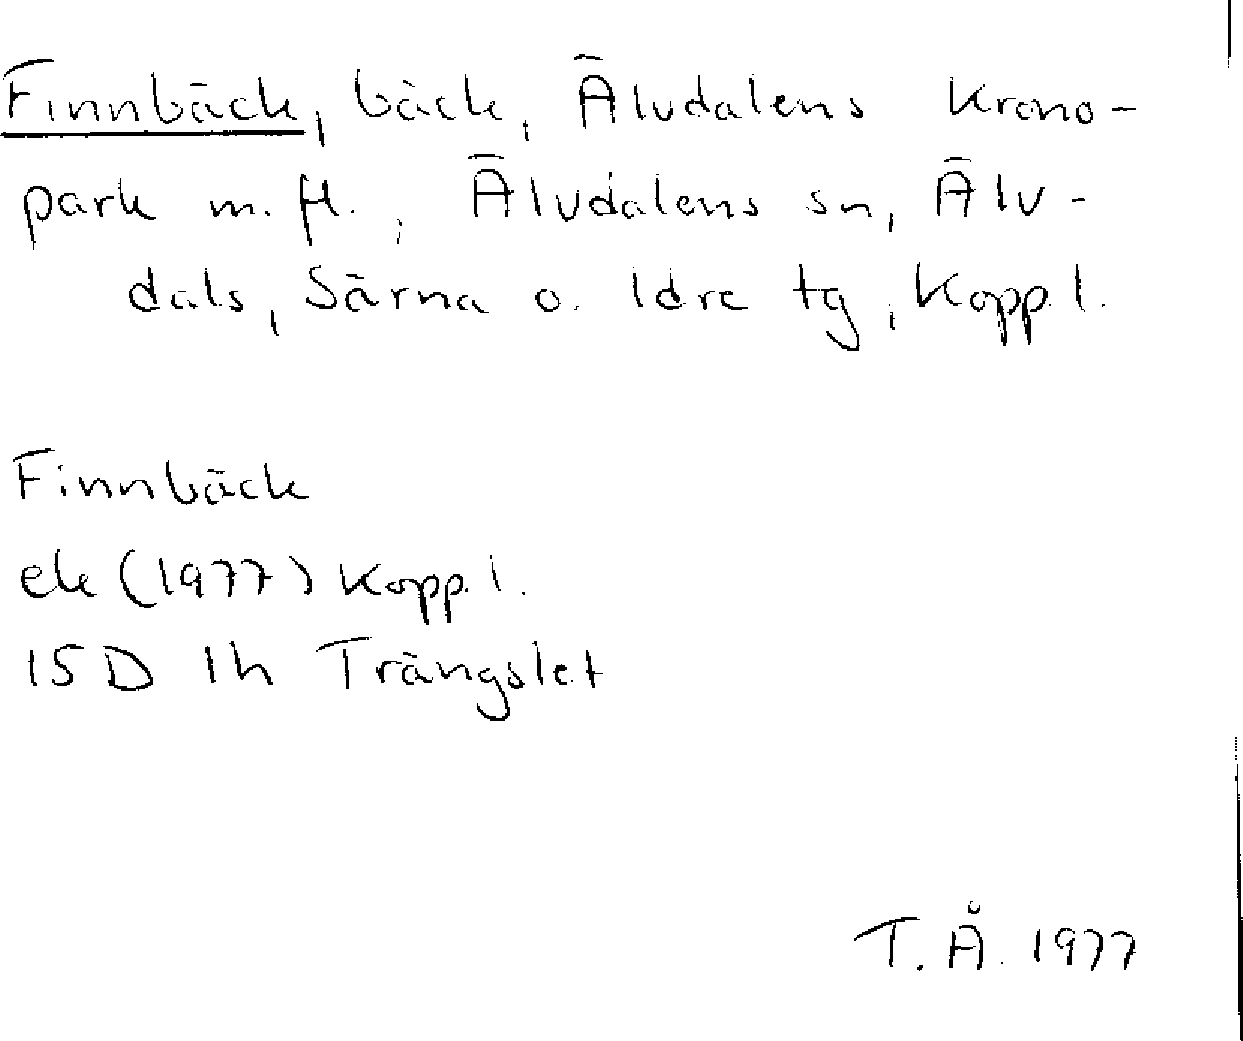 Finnbäck, bäck, Älvdalens Krono-
park m. fl., Älvdalens sn, Älv-
dals, Särna o. Idre tg, Kopp. l.
Finnbäck
ek (1977) Kopp. l.
15D 1h Trängslet
T. Å. 1977